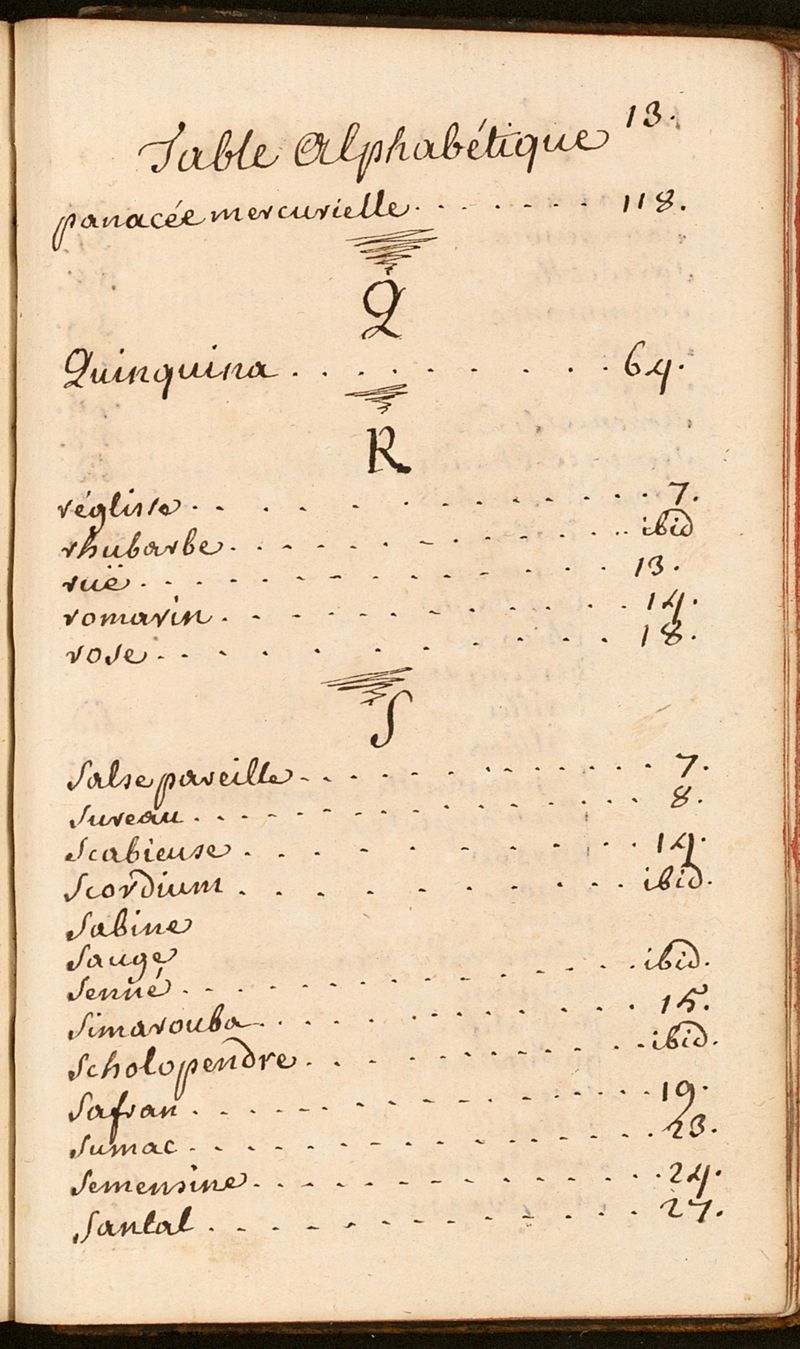 13.
Table Alphabétique
panacée mercurielle . . . . . . . 118.
Q
Quinquina . . . . . . . . . 64.
R
réglisse . . . . . . . . . . . . . . 7.
rhubarbe . . . . . . . . . . . . . ibid
ruë . . . . . . . . . . . . . . 13.
romarin . . . . . . . . . . . . . 14.
rose . . . . . . . . . . . . 18.
S
Salse pareille . . . . . . . . . . . . . 7.
Sureau . . . . . . . . . . . . . . . 8.
Scabieuse . . . . . . . . . . . . 14.
Scordium . . . . . . . . . . . ibid.
Sabine
Sauge
Senné . . . . . . . . . . . . . . ibid.
Simarouba . . . . . . . . . . . . . 15.
Scholopendre . . . . . . . . . . . . ibid.
Safran . . . . . . . . . . . . . . . 19.
Sumac . . . . . . . . . . . . . . . 23.
Semensine . . . . . . . . . . . . . . 24.
Santal . . . . . . . . . . . . . 27.